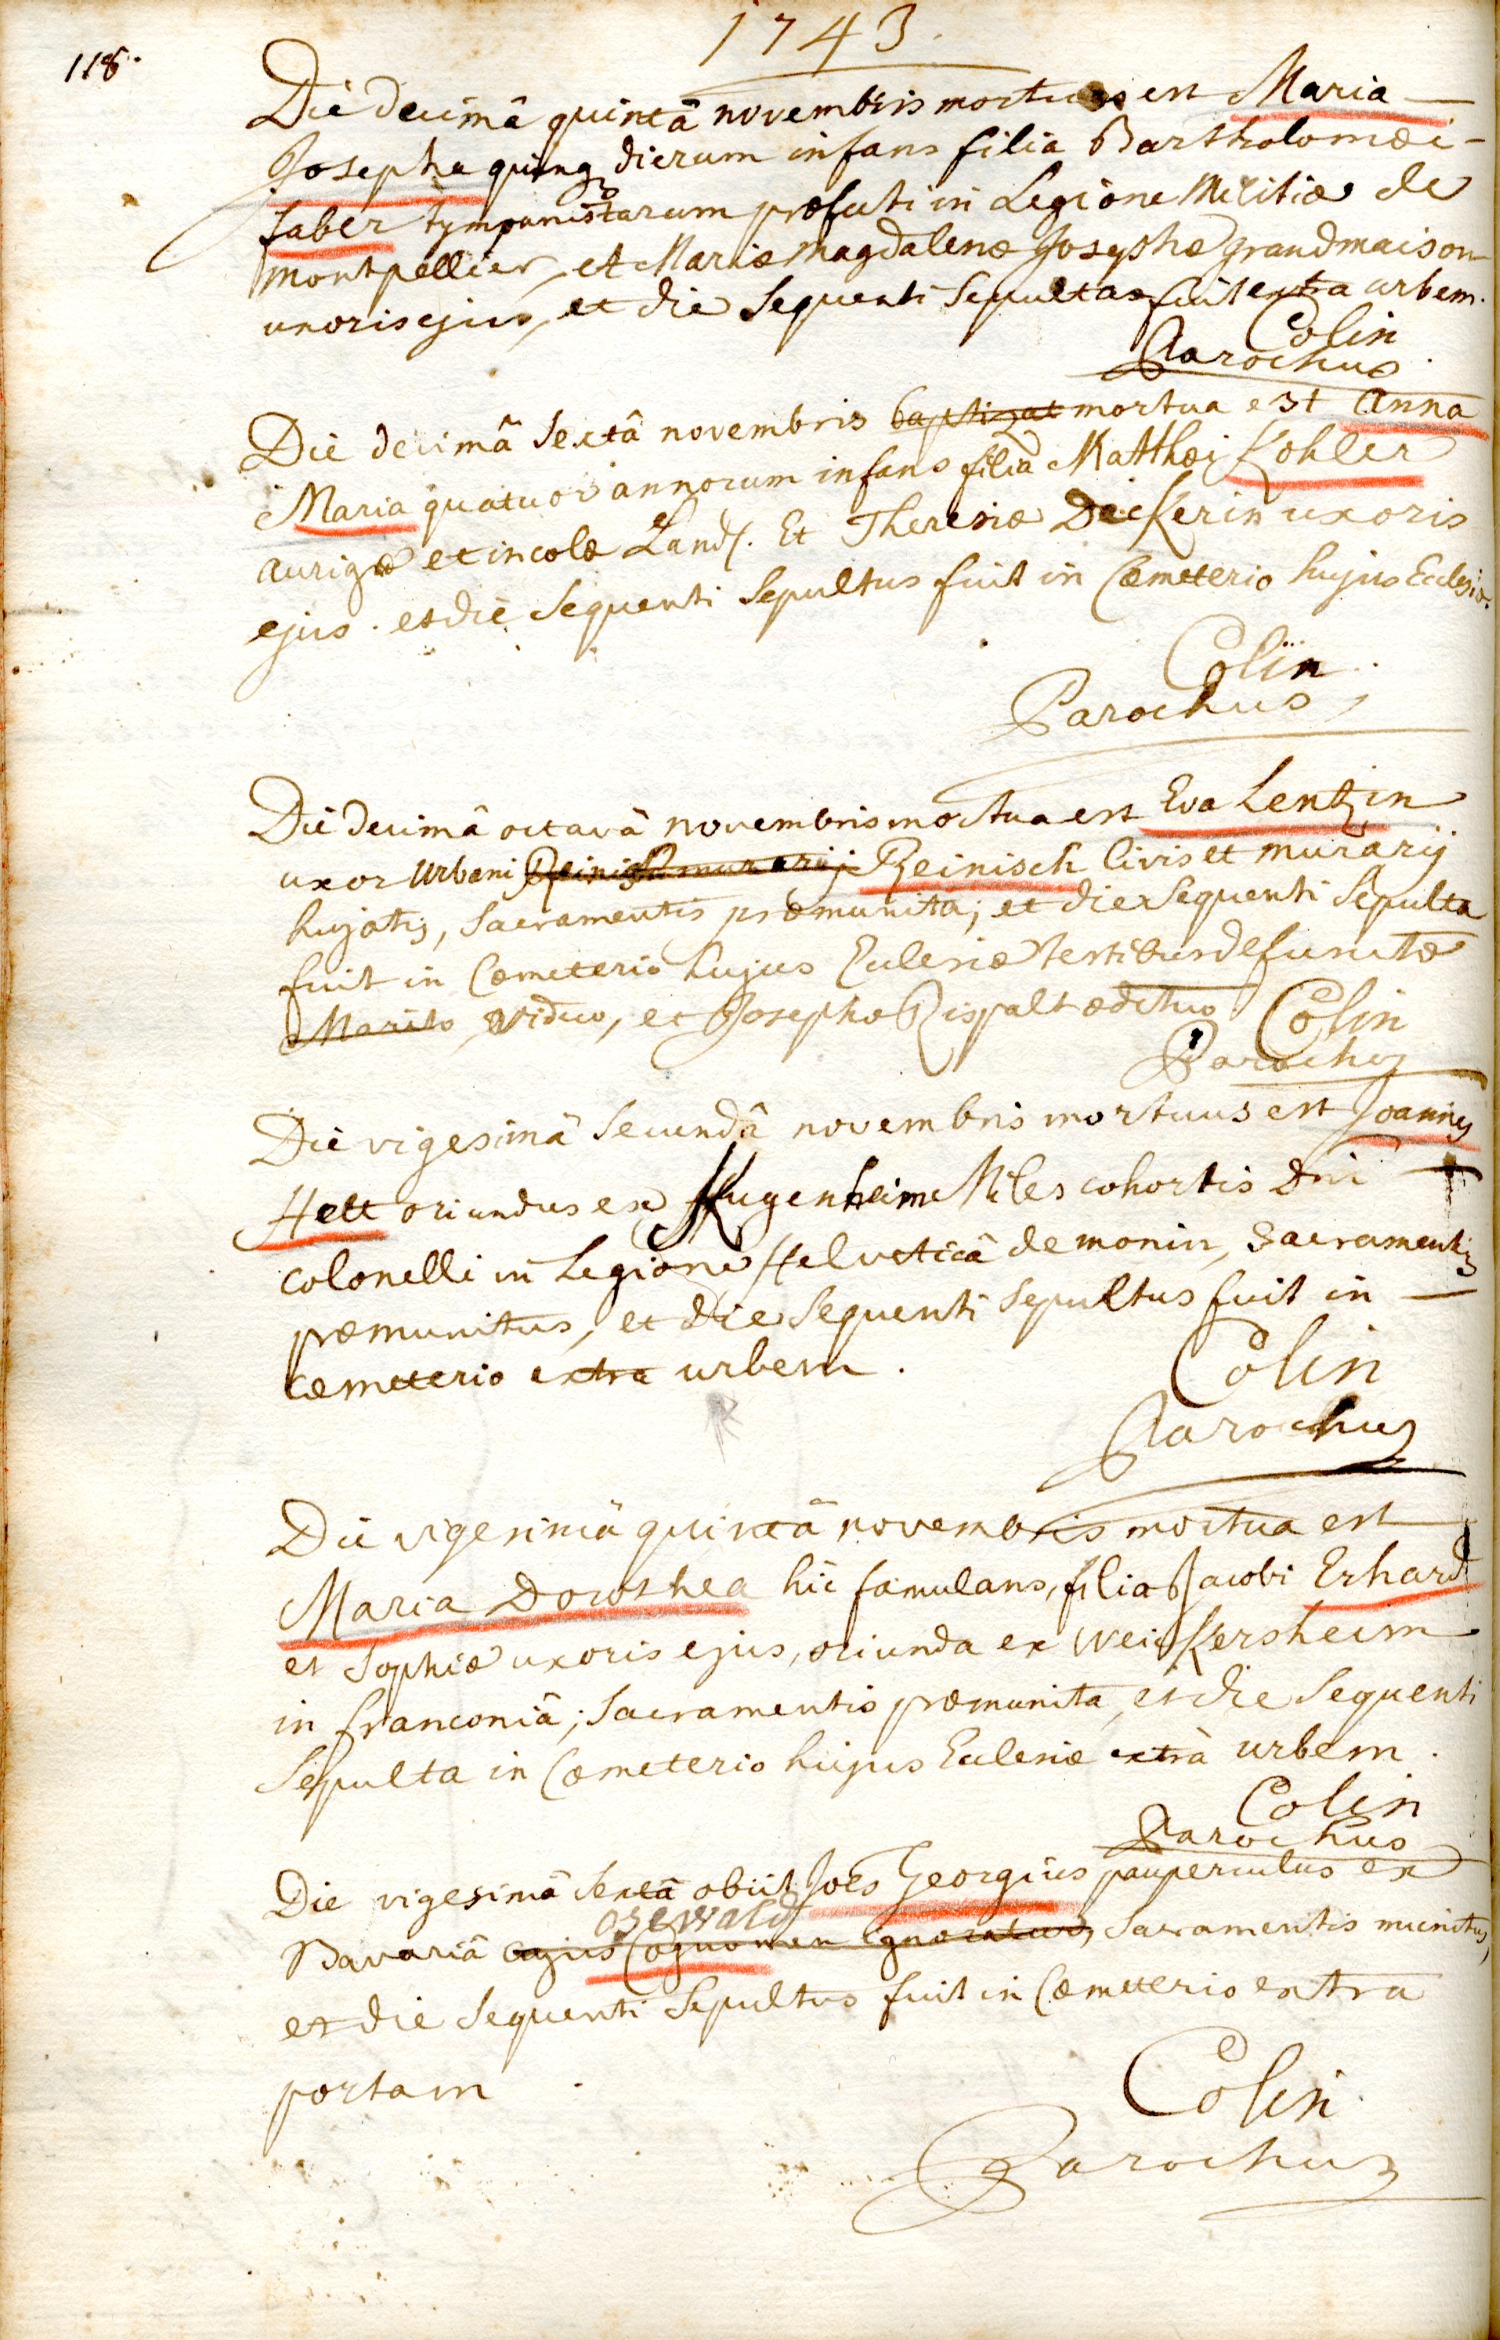 1743.
118.
Die decimâ quintâ novembris mortua est Maria
Josepha quinq dierum infans filia Bartholomæi
faber tympanistarum præfecti in Legione Militiæ de
montpellier, et Mariæ Magdalenæ Josephæ grandmaison
uxoris ejus, et die sequenti sepulta fuit extra urbem.
Colin
Parochus.
Die decimâ sextâ novembris baptizat mortua est Anna
Maria quatuor annorum infans filia Matthæi Kohler
aurigæ et incolæ Land. Et Theresiæ Deickerin uxoris
ejus. et die sequenti sepultus fuit in Cœmeterio hujus Ecclesiæ.
Colin
Parochus
Die decimâ octavâ novembris mortua est Eva Lentzin
uxor Urbani Reinisch murarij Reinisch Civis et murarij
hujatis, sacramentis præmunita; et die sequenti sepulta
fuit in Cœmeterio hujus Ecclesiæ testibus defunctæ
Marito viduo, et Josepho Rispalt ædituo Colin
Parochus
Die vigesimâ secundâ novembris mortuus est Joannes
Hett oriundus ex Hugenheim Miles cohortis Dni
colonelli in Legione Helveticâ de monin, Sacramentis
præmunitus, et die sequenti sepultus fuit in
cœmeterio extra urbem.
Colin
Parochus
Die vigesimâ quintâ novembris mortua est
Maria Dorothea hic famulans, filia Jacobi Erhard
et Sophiæ uxoris ejus, oriunda ex Weickersheim
in franconiâ; Sacramentis præmunita, et die sequenti
Sepulta in Cœmeterio hujus Ecclesiæ extrà urbem.
Colin
Parochus
Die vigesimâ sextâ obiit Joës Georgius pauperculus ex
osewald
Bavariâ cujus Cognomen ignoratur, Sacramentis munitus,
et die sequenti sepultus fuit in Cœmeterio extra
portam
Colin
Parochus